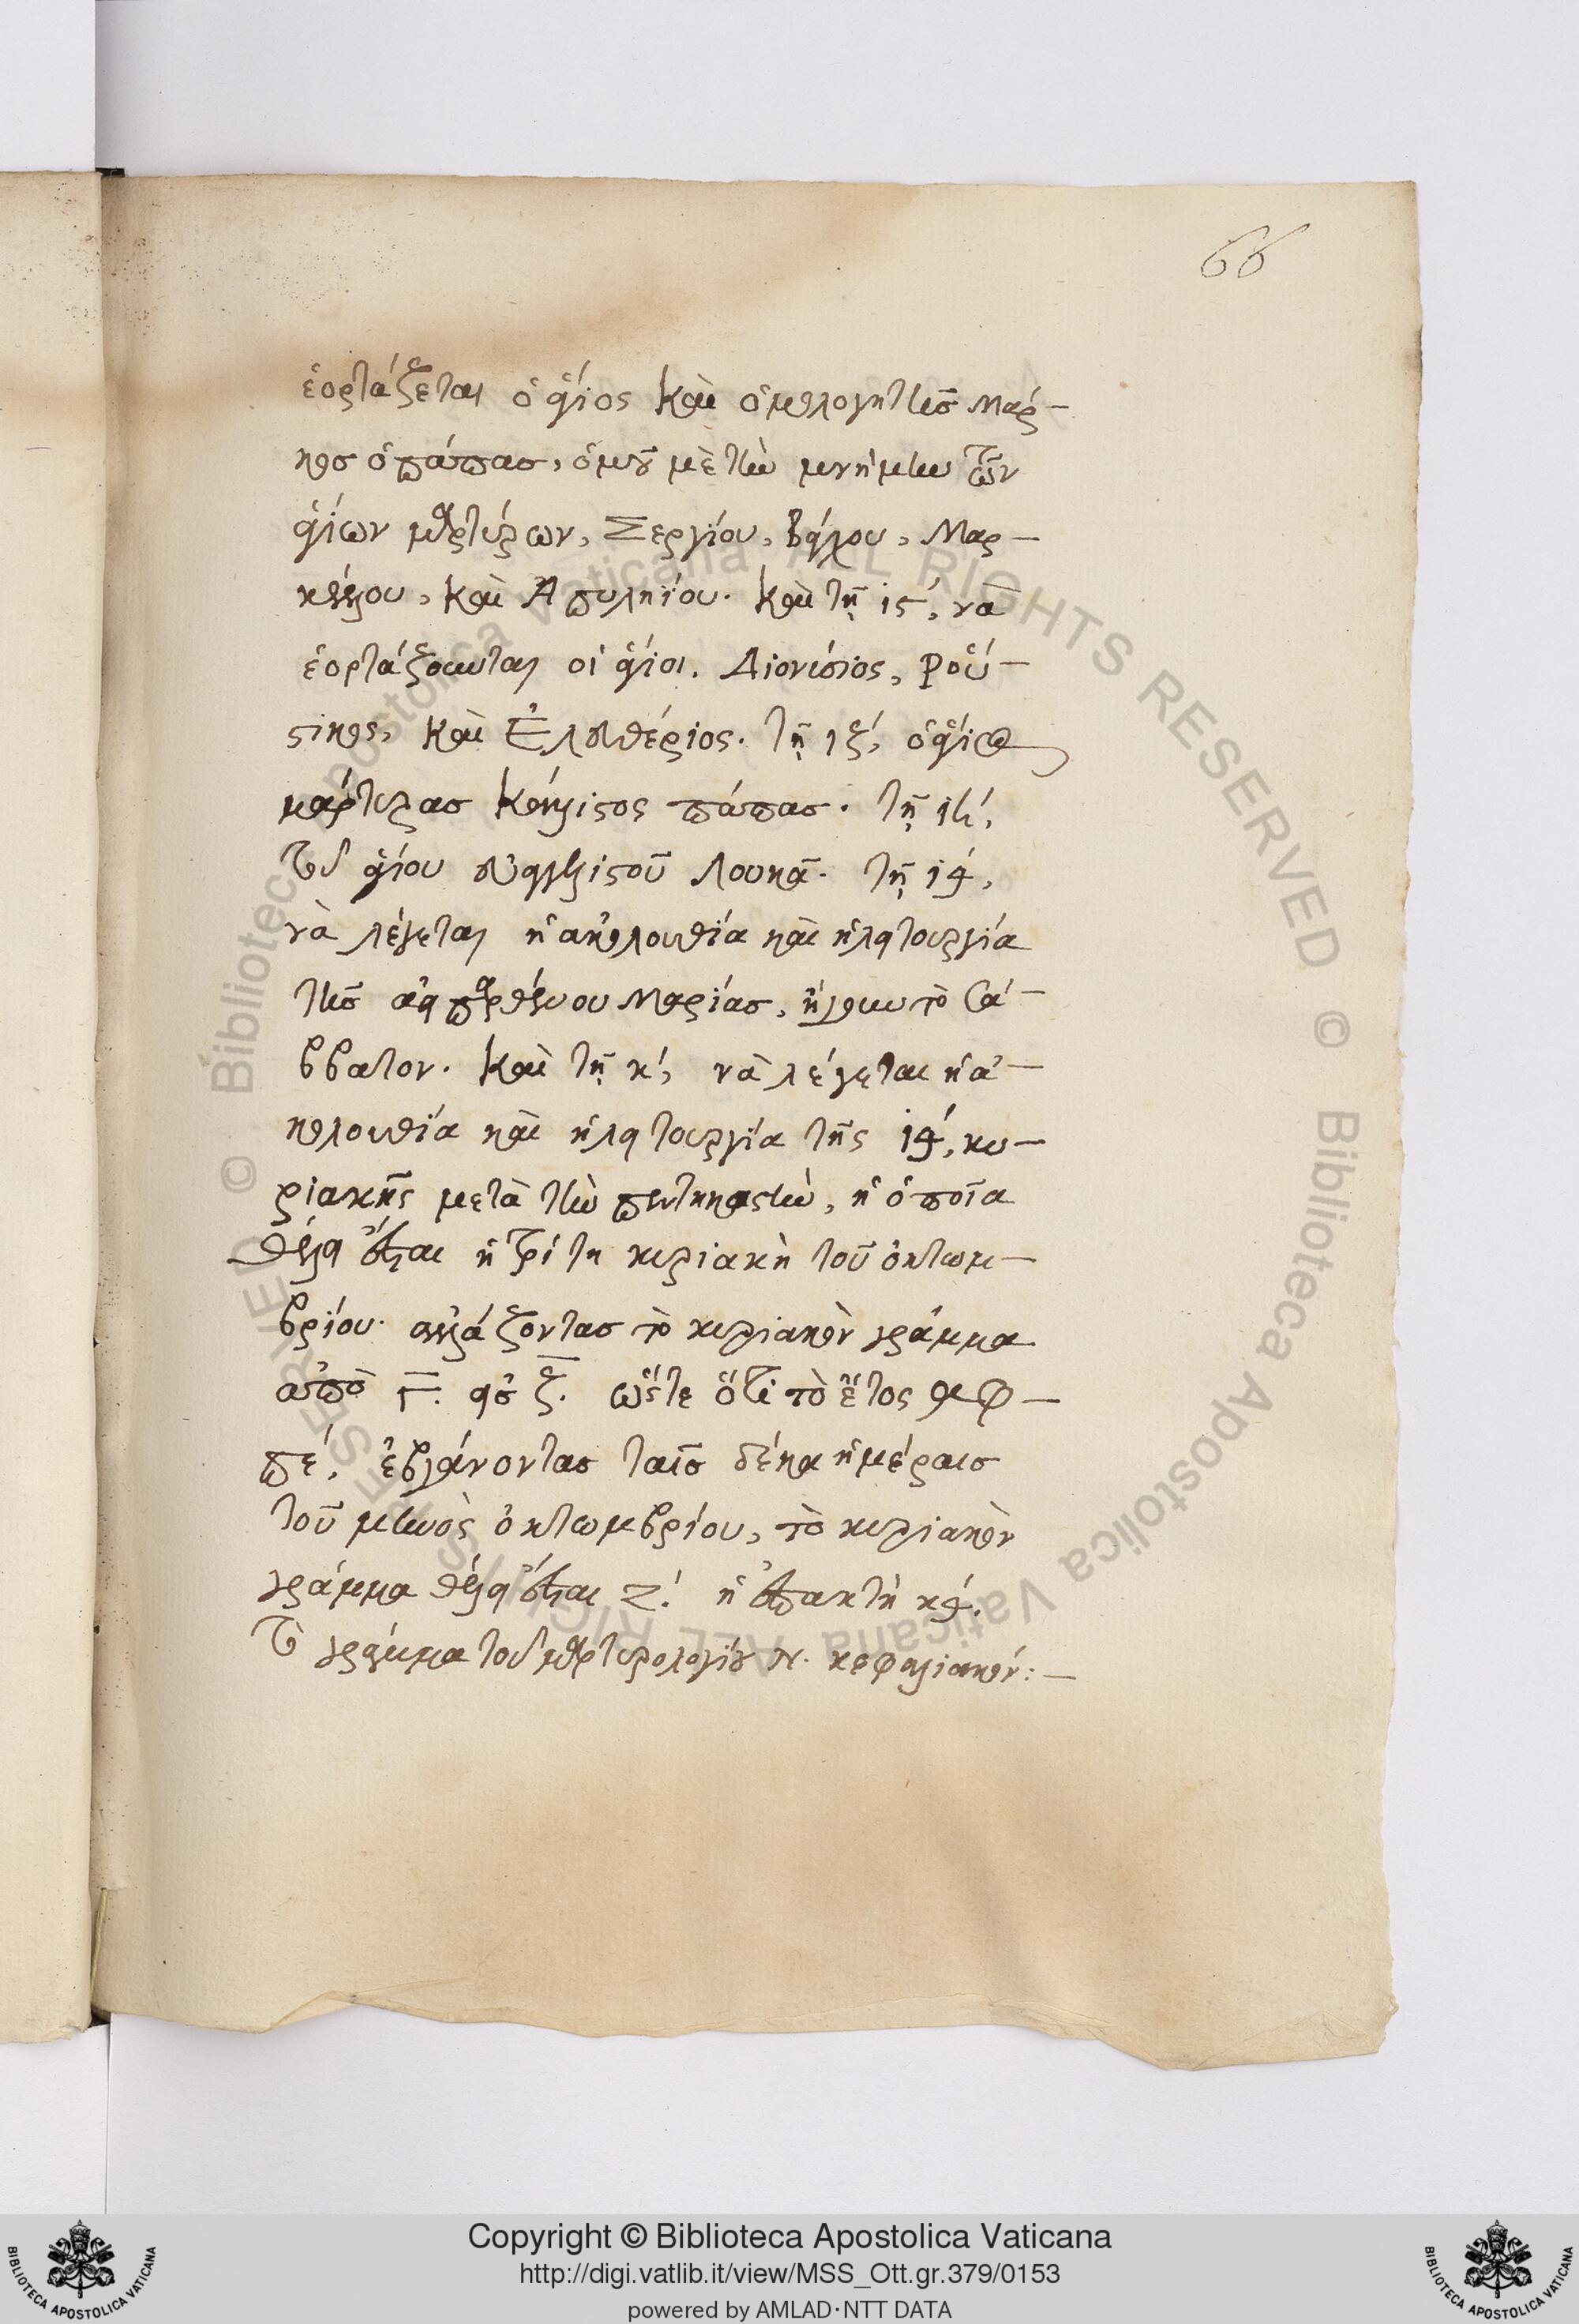 66
ἑορτάζεται ὁ ἅγιος καὶ ὁμολογητὴς Μάρ-
κος ὁ πάπας, ὁμοῦ μὲ τὴν μνήμην τῶν
ἁγίων μαρτύρων, Σεργίου, Βάχου, Μαρ-
κέλλου, καὶ Ἀπυληΐου. καὶ τῇ ις΄, νὰ
ἑορτάζουνται οἱ ἅγιοι. Διονύσιος, Ῥού-
στικος, καὶ Ἐλευθέριος. τῇ ιζ΄, ὁ ἅγιος
μάρτυρας Κάλλιστος πάπας. τῇ ιη΄,
τοῦ ἁγίου εὐαγγελιστοῦ Λουκᾶ. τῇ ιθ΄,
νὰ λέγεται ἡ ἀκολουθία καὶ ἡ λειτουργία
τῆς ἀειπαρθένου Μαρίας, ἤγουν τὸ Σά-
ββατον. καὶ τῇ κ΄, νὰ λέγεται ἡ ἀ-
κολουθία καὶ ἡ λειτουργία τῆς ιθ΄, κυ-
ριακῆς μετὰ τὴν πεντηκοστὴν, ἡ ὁποῖα
θέλει ἔσται ἡ τρίτη κυριακὴ τοῦ ὀκτωμ-
βρίου. ἀλλάζοντας τὸ κυριακὸν γράμμα
ἀπὸ Γ. εἰς ζ. ὥστε ὅτι τὸ ἔτος ͵αφ-
πε΄, ἐβγάνοντας ταῖς δέκα ἡμέραις
τοῦ μηνὸς ὀκτωμβρίου, τὸ κυριακὸν
γράμμα θέλει ἔσται Ζ΄. ἡ ἐπακτὴ κθ΄.
τὸ γράμμα τοῦ μαρτυρολογίου Ν. κεφαλιακόν:-
Copyright © Biblioteca Apostolica Vaticana
http://digi.vatlib.it/view/MSS_Ott.gr.379/0153
powered by AMLAD·NTT DATA
BIBLIOTECA APOSTOLICA VATICANA
BIBLIOTECA APOSTOLICA VATICANA
© Biblioteca Apostolica Vaticana ALL RIGHTS RESERVED
© Biblioteca Apostolica Vaticana ALL RIGHTS RESERVED